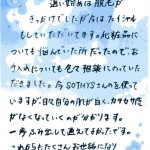 通い始めは脱毛が
きっかけでしたが今はフェイシャル
もしていただいてます。化粧品に
ついても悩んでいた所だったのでお
さめについても色々相談にのっていた
だきました。今SOTHYSさんのを使っ
ていますが、日々自分の肌が白く、カサカサ感
がなくなっていくのが分かります。
一歩ふみ出して通えてよかったです。
これからもたくさんお世話になり